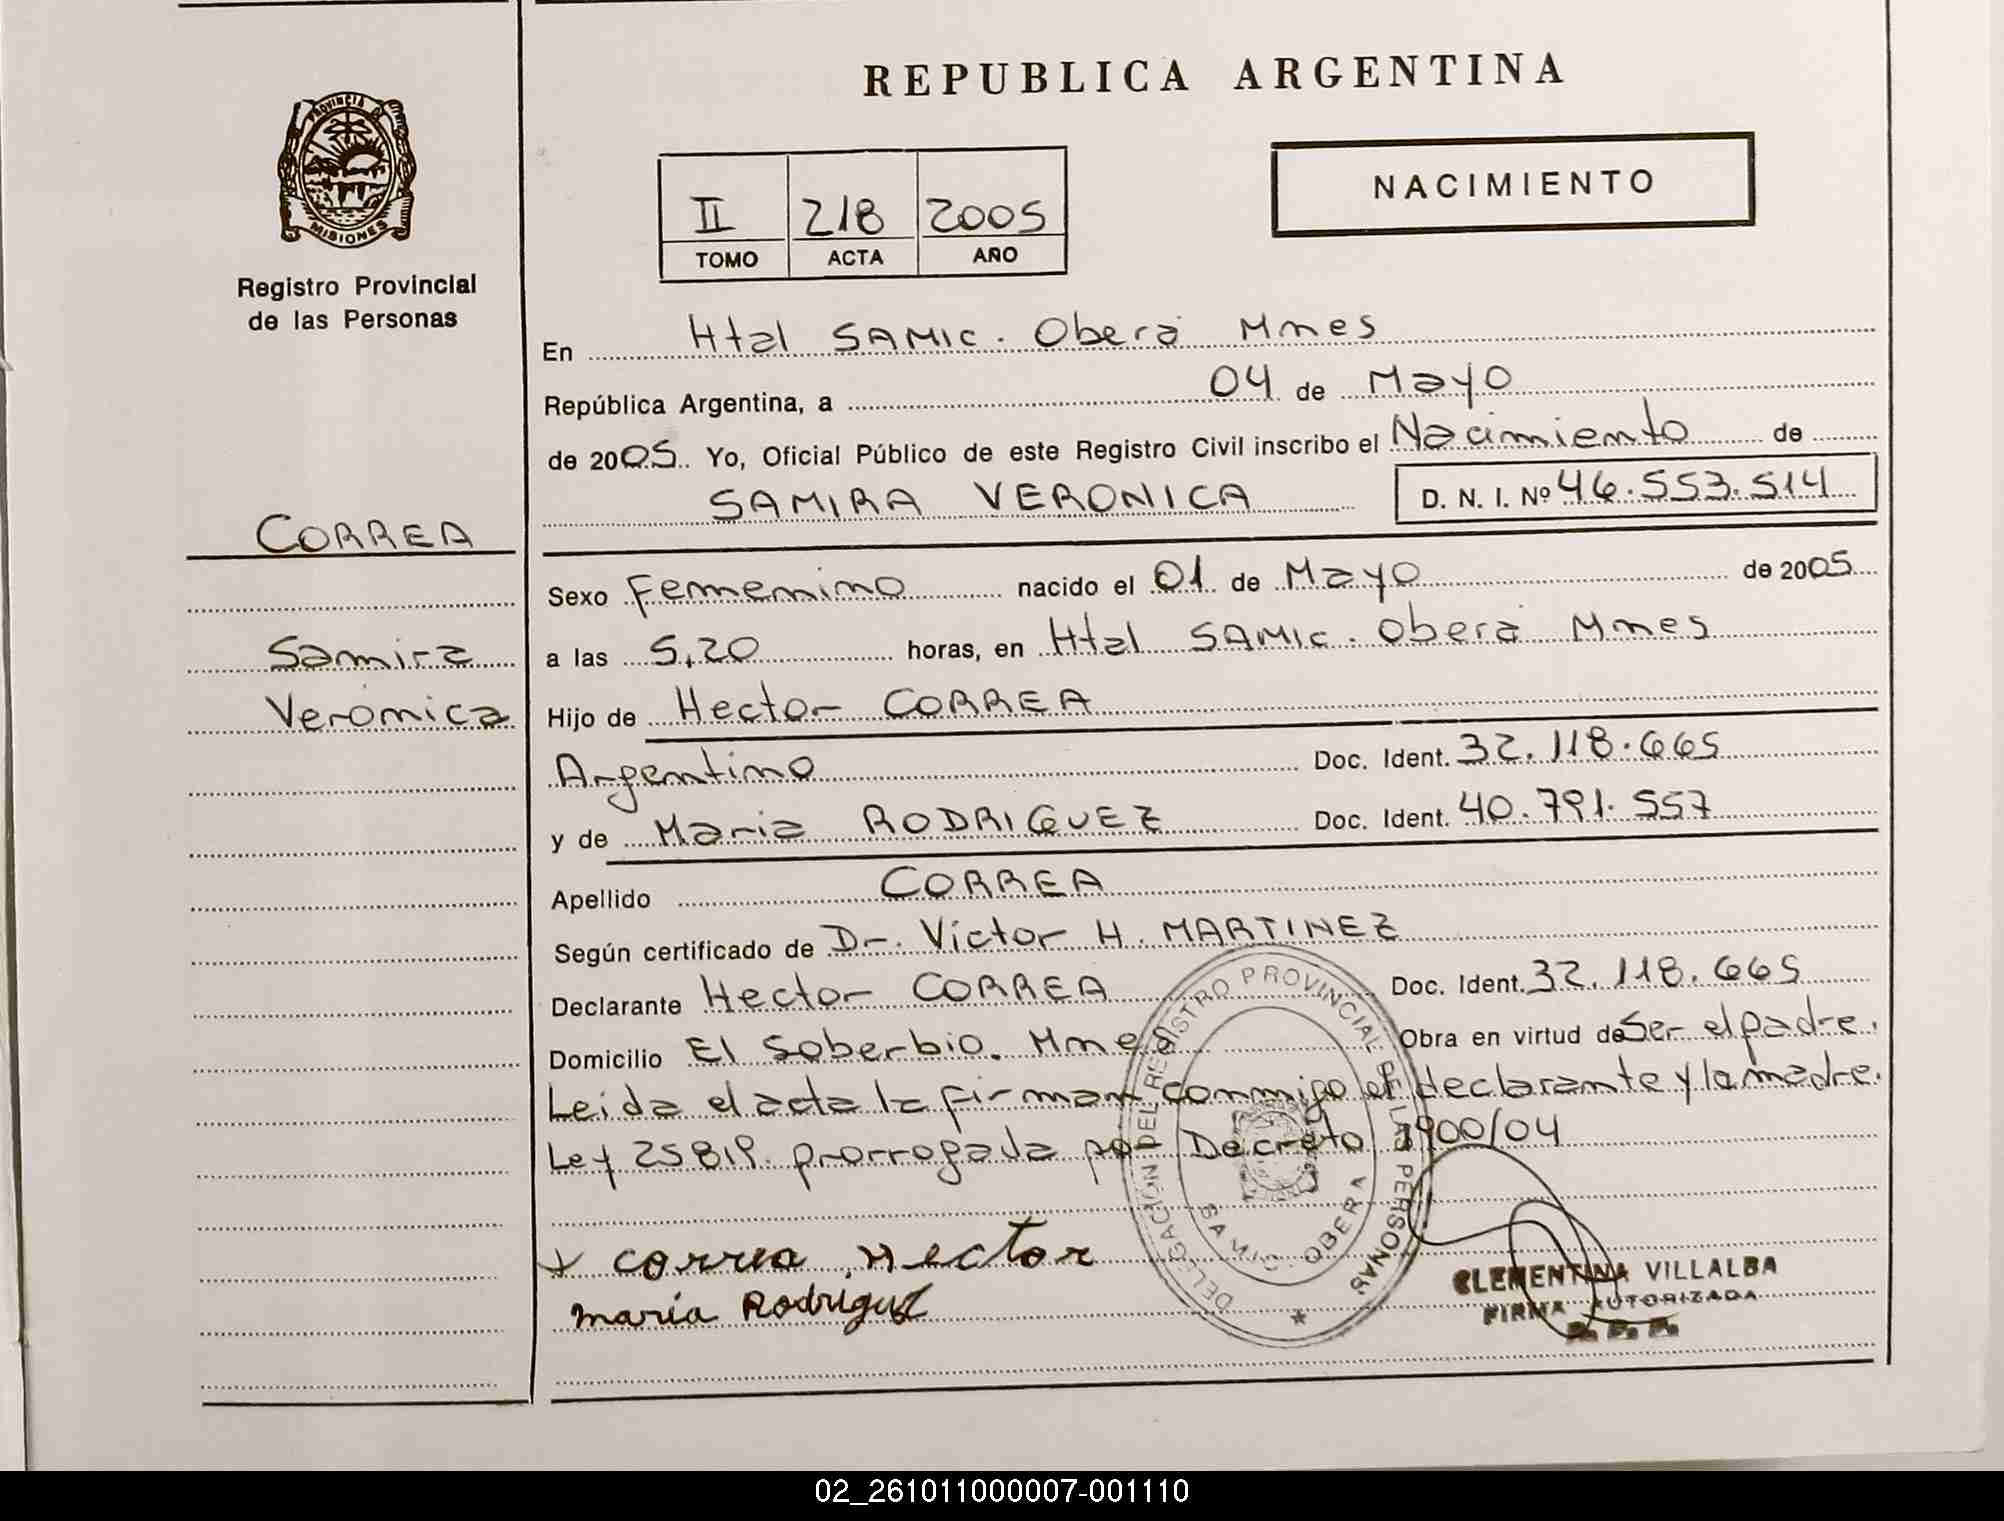 REPUBLICA ARGENTINA
PROVINCIA DE
MISIONES
Registro Provincial
de las Personas
II 218 2005
TOMO ACTA AÑO
NACIMIENTO
En Htal SAMIC. Oberá Mnes
República Argentina, a 04 de Mayo
de 2005. Yo, Oficial Público de este Registro Civil inscribo el Nacimiento de
SAMIRA VERONICA D. N. I. Nº 46.553.514
CORREA
Samira
Verónica
Sexo Femenino nacido el 01 de Mayo de 2005
a las 5,20 horas, en Htal SAMIC. Oberá Mnes
Hijo de Hector CORREA
Argentino Doc. Ident. 32.118.665
y de Maria RODRIGUEZ Doc. Ident. 40.791.557
Apellido CORREA
Según certificado de Dr. Victor H. MARTINEZ
Declarante Hector CORREA Doc. Ident. 32.118.665
Domicilio El Soberbio. Mnes Obra en virtud de Ser el padre.
Leida el acta la firman conmigo el declarante y la madre.
Ley 25819. prorrogada por Decreto 1900/04
DELEGACIÓN DEL REGISTRO PROVINCIAL DE LAS PERSONAS
SAMIC. OBERA
x correa Hector
maria Rodriguez
CLEMENTINA VILLALBA
FIRMA AUTORIZADA
R. P. P.
02_261011000007-001110